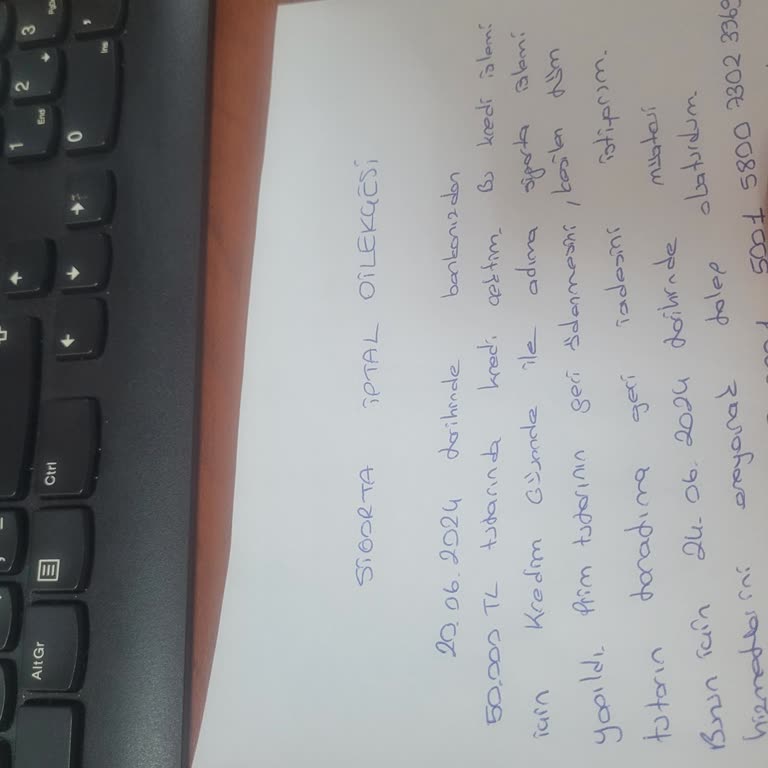 SİGORTA İPTAL DİLEKÇESİ
20.06.2024 tarihinde bankanızdan
50.000 TL tutarında kredi çektim. Bu kredi işlemi
için Kredim Güvende ile adıma sigorta işlemi
yapıldı. Prim tutarının geri ödenmesini, kesilen tüm
tutarın tarafıma geri iadesini istiyorum.
Bunun için 24.06.2024 tarihinde müşteri
hizmetlerini arayarak talep oluşturdum.
5001 5800 7302 3369
AltGr
Ctrl
1 End
2
3 PgDn
0 Ins
,